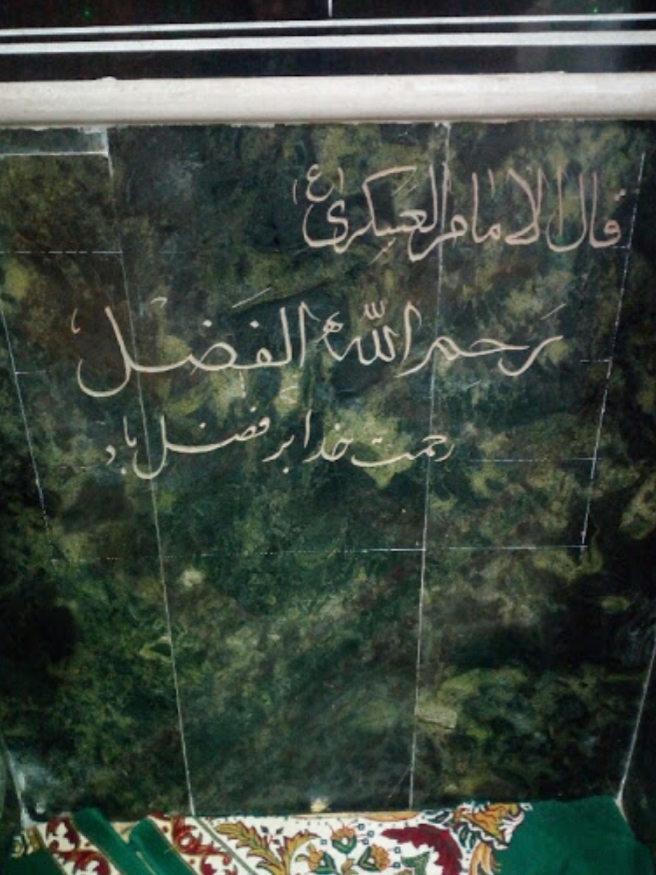 قال الامام العسکری (ع)
یرحم الله الفضل
رحمت خدا بر فضل باد